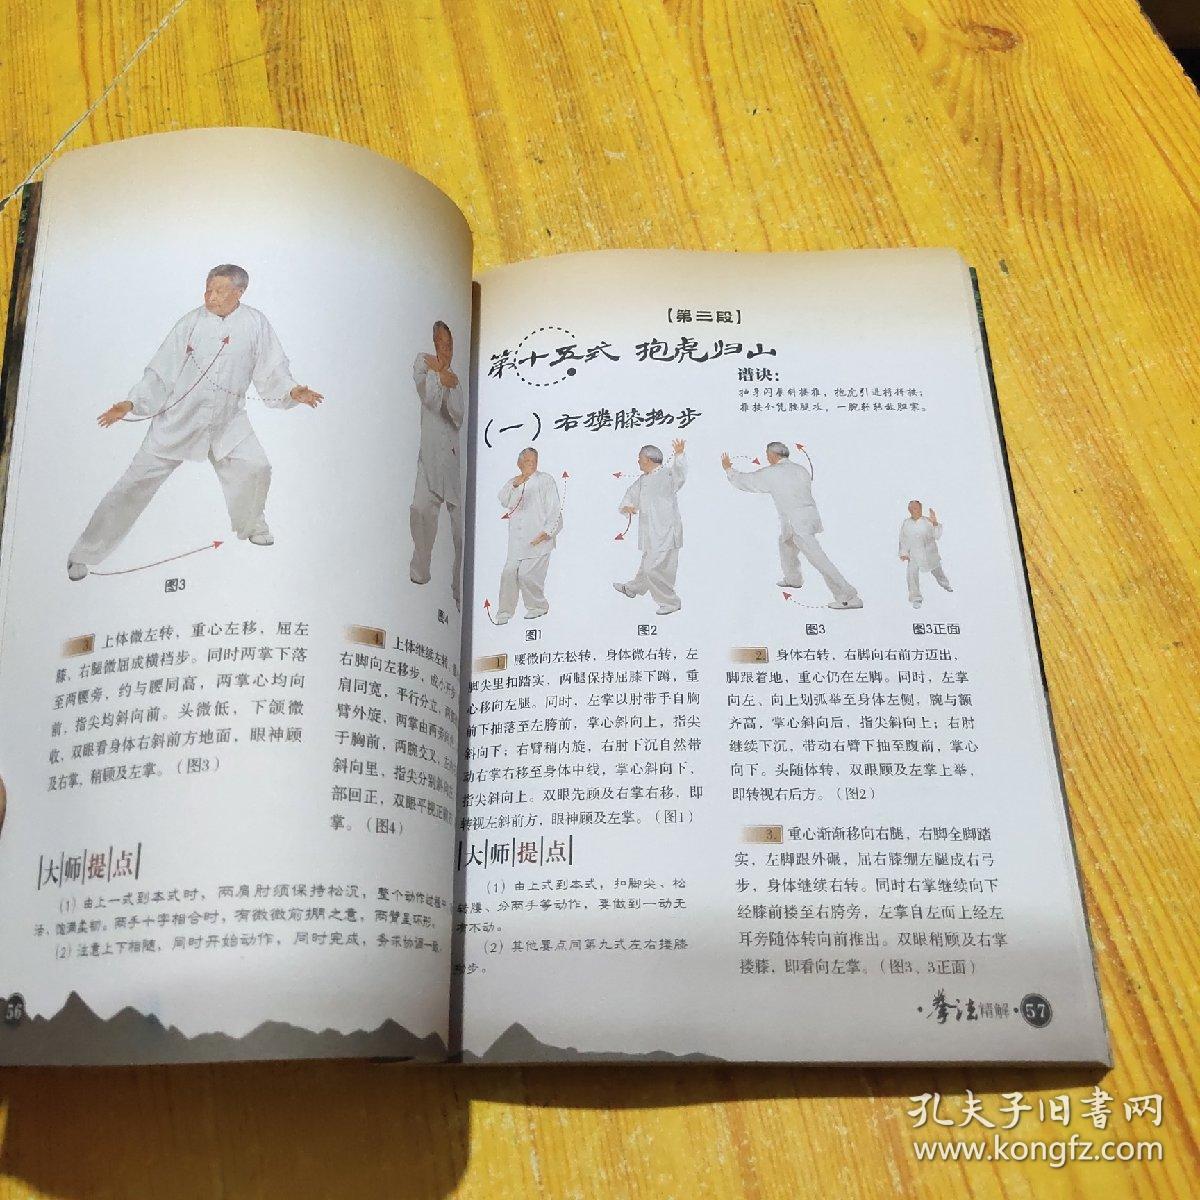 图3
图4
3. 上体微左转，重心左移，屈左
膝，右腿微屈成横裆步。同时两掌下落
至两腰旁，约与腰同高，两掌心均向
前，指尖均斜向前。头微低，下颌微
收，双眼看身体右斜前方地面，眼神顾
及右掌，稍顾及左掌。（图3）
4. 上体继续左转，重
右脚向左移步，成小开步
肩同宽，平行分立，两
臂外旋，两掌由两旁
于胸前，两腕交叉，左
斜向里，指尖分别斜向
部回正，双眼平视正前
掌。（图4）
大师提点
（1）由上一式到本式时，两肩肘须保持松沉，整个动作过程中
活、饱满柔韧。两手十字相合时，有微微前掤之意，两臂呈环形。
（2）注意上下相随，同时开始动作，同时完成，务求协调一致。
56
【第三段】
第十五式 抱虎归山
谱诀：
抱虎引进将挤按；
（一）右搂膝拗步
图1
图2
图3
图3正面
1. 腰微向左松转，身体微右转，左
脚尖里扣踏实，两腿保持屈膝下蹲，重
心移向左腿。同时，左掌以肘带手自胸
前下抽落至左胯前，掌心斜向上，指尖
斜向下；右臂稍内旋，右肘下沉自然带
动右掌右移至身体中线，掌心斜向下，
指尖斜向上。双眼先顾及右掌右移，即
转视左斜前方，眼神顾及左掌。（图1）
大师提点
（1）由上式到本式，扣脚尖、松
转腰、分两手等动作，要做到一动无
有不动。
（2）其他要点同第九式左右搂膝
拗步。
2. 身体右转，右脚向右前方迈出，
脚跟着地，重心仍在左脚。同时，左掌
向左、向上划弧举至身体左侧，腕与额
齐高，掌心斜向后，指尖斜向上；右肘
继续下沉，带动右臂下抽至腹前，掌心
向下。头随体转，双眼顾及左掌上举，
即转视右后方。（图2）
3. 重心渐渐移向右腿，右脚全脚踏
实，左脚跟外碾，屈右膝绷左腿成右弓
步，身体继续右转。同时右掌继续向下
经膝前搂至右胯旁，左掌自左而上经左
耳旁随体转向前推出。双眼稍顾及右掌
搂膝，即看向左掌。（图3、3正面）
·拳法精解·57
孔夫子旧书网
www.kongfz.com